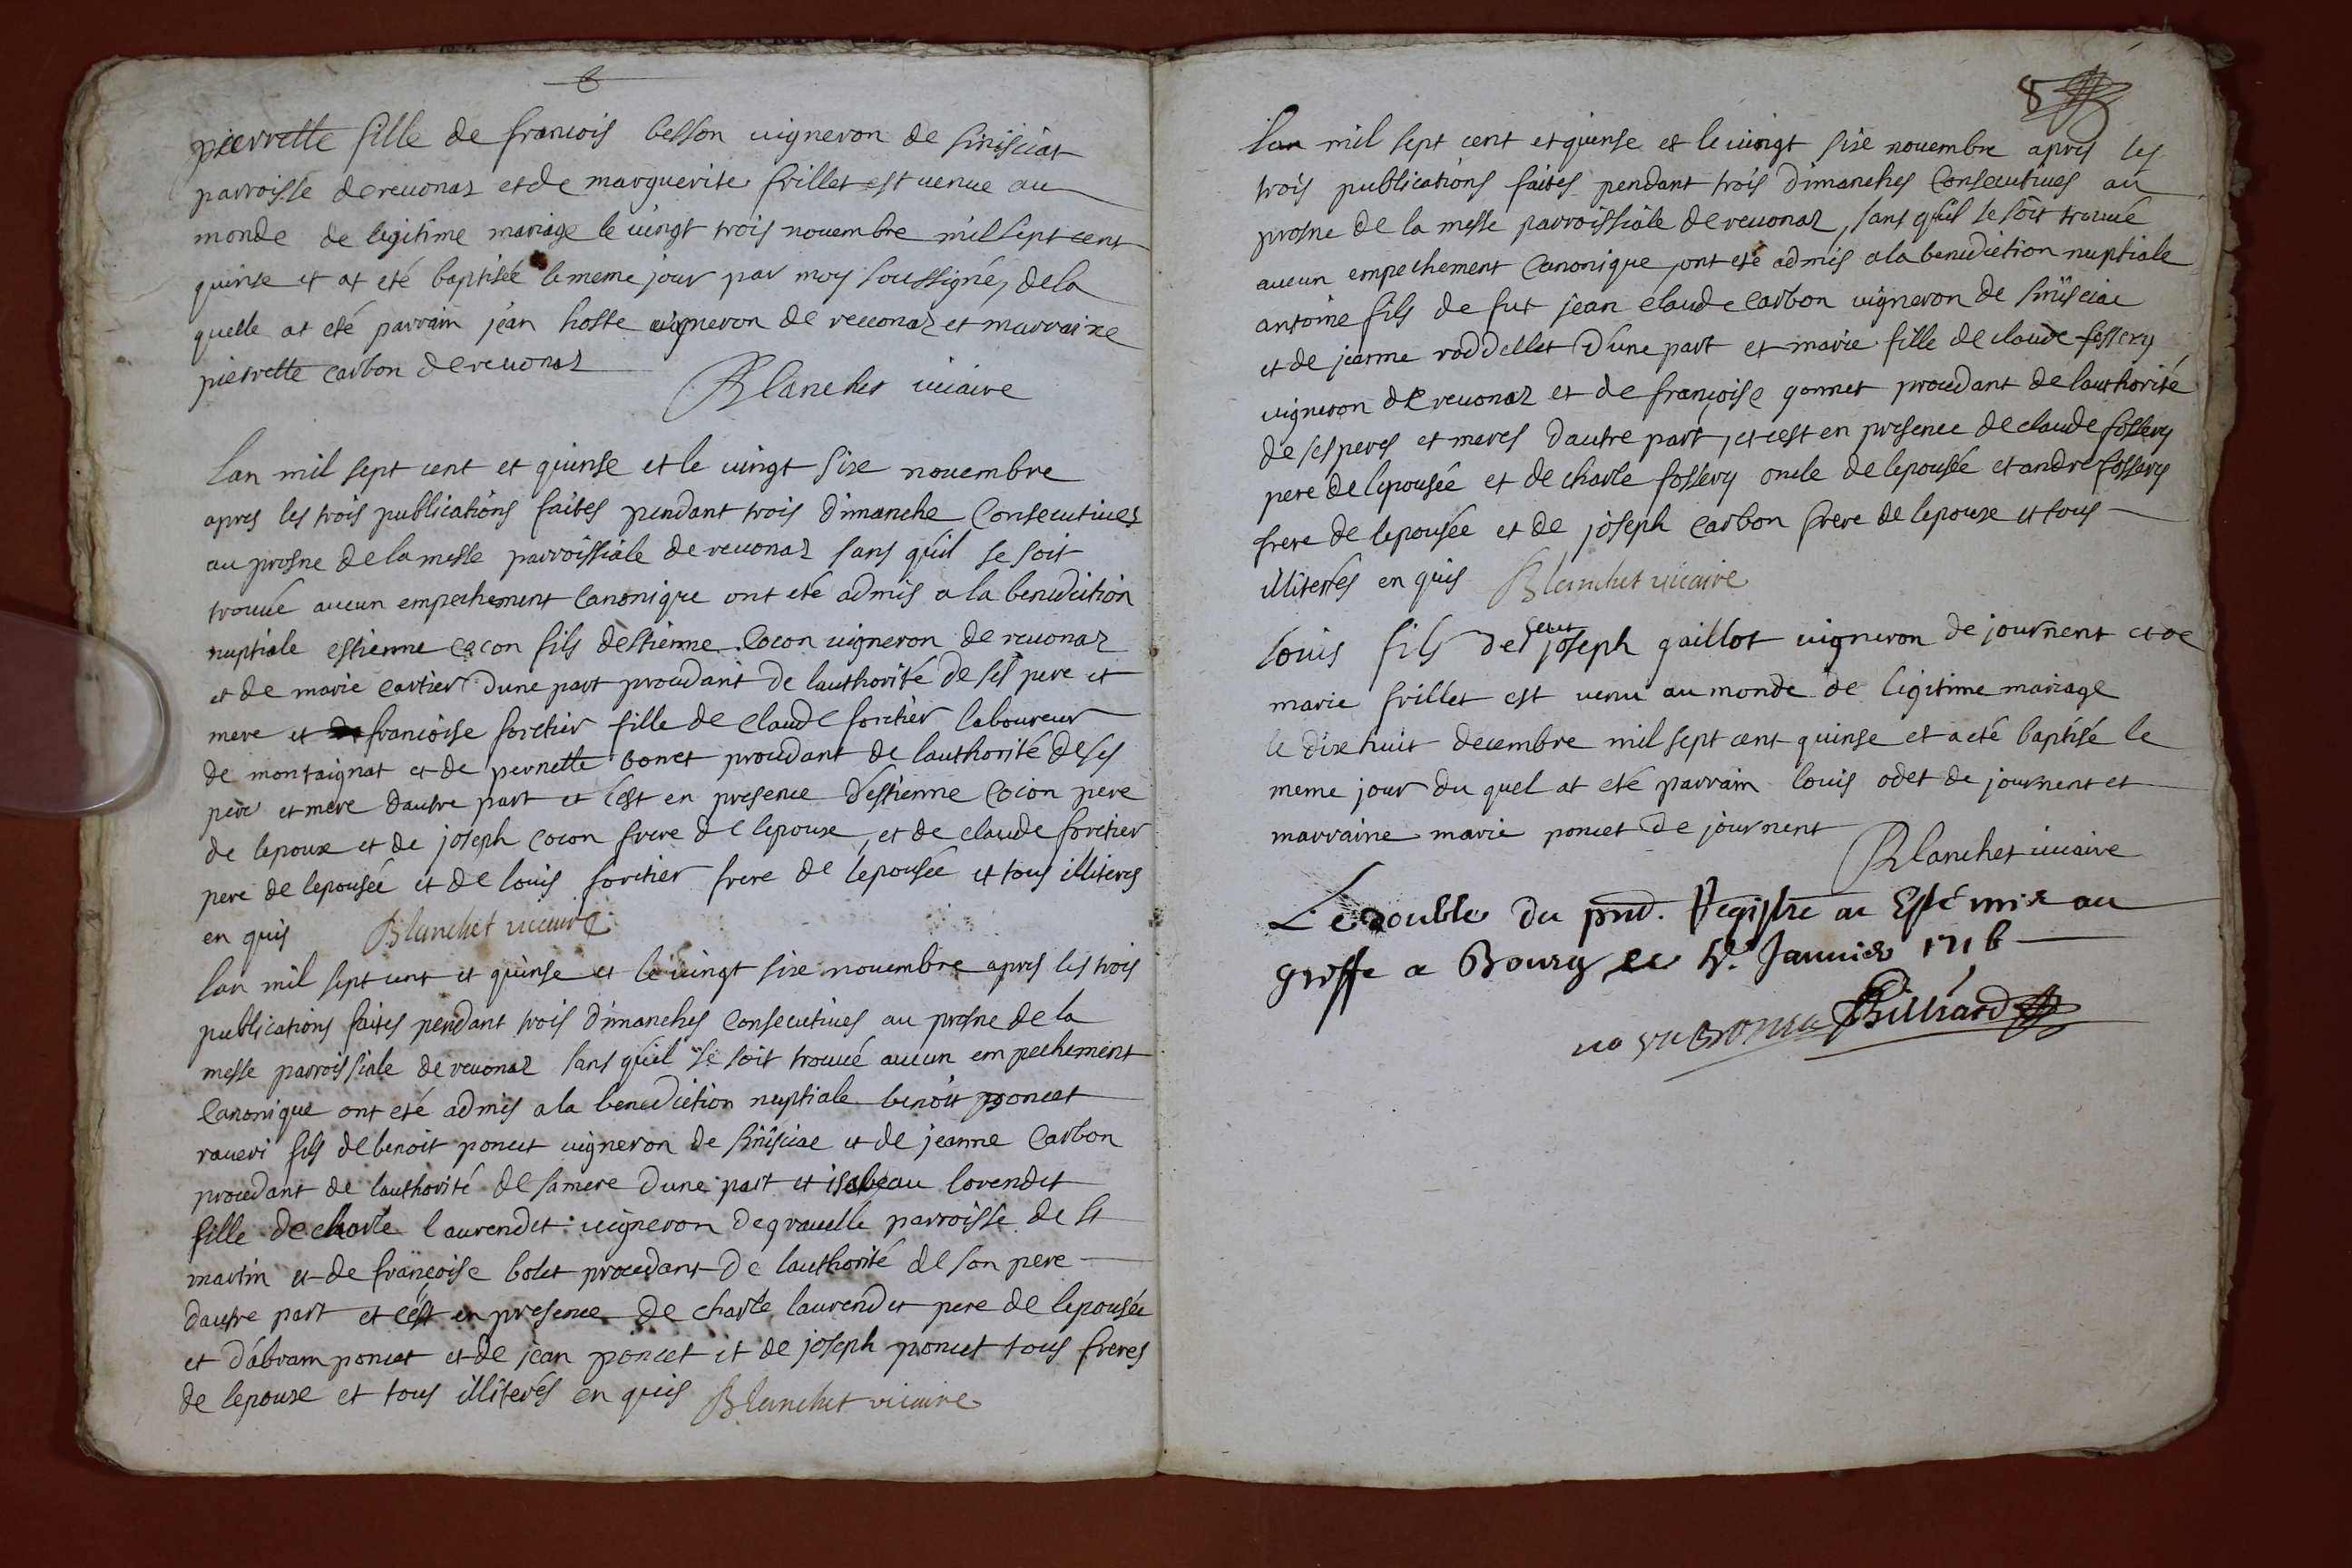 pierrette fille de francois besson uigneron de sinisciat
parroisse de reuonas et de marguerite frillet est uenue au
monde de legitime mariage le uingt trois nouembre mil sept cent
quinse et at eté baptisée le meme jour par moy soussigné, de la
quelle at eté parrain jean hoste uigneron de reuonas et marraine
pierrette carbon de reuonas
Blanchet uicaire
lan mil sept cent et quinse et le uingt sixe nouembre
apres les trois publications faites pendant trois dimanche Consecutiues
au prosne de la messe parroissiale de reuonas sans qu'il se soit
trouué aucun empechement Canonique ont eté admis a la benediction
nuptiale estienne cocon fils destienne Cocon uigneron de reuonas
et de marie cartier d'une part procedant de lauthorité de ses pere et
mere et francoise foretier fille de claude foretier laboureur
de montaignat et de pernette bonet procedant de lauthorité de ses
pere et mere dautre part et c'est en presence d'estienne Cocon pere
de lepoux et de joseph cocon frere de lepoux, et de claude foretier
pere de lepousée et de louis foretier frere de lepousée et tous illiteres
en quis Blanchet uicaire
lan mil sept cent et quinse et le uingt sixe nouembre apres les trois
publications faites pendant trois dimanches Consecutiues au prosne de la
messe parroissiale de reuonas sans qu'il se soit trouué aucun empechement
Canonique ont eté admis a la benediction nuptiale benoit poncet
raueri fils de benoit poncet uigneron de sinisciac et de jeanne Carbon
procedant de lauthorité de sa mere d'une part et isabeau lorendet
fille de charle laurendet uigneron de grauelle parroisse de st
martin et de françoise bolet procedant de lauthorité de son pere
dautre part et c'est en presence de charle laurendet pere de lepousée
et d'abram poncet et de jean poncet et de joseph poncet tous freres
de lepoux et tous illiterés en quis Blanchet uicaire
8
lan mil sept cent et quinse et le uingt sixe nouembre apres les
trois publications faites pendant trois dimanches Consecutiues au
prosne de la messe parroissiale de reuonas, sans qu'il se soit trouué
aucun empechement Canonique, ont eté admis a la benediction nuptiale
antoine fils de fut jean claude carbon uigneron de sinisciac
et de jeanne roddellet d'une part et marie fille de claude fossery
uigneron de reuonas et de françoise gonnet procedant de lauthorité
de ses peres et meres dautre part, et c'est en presence de claude fossery
pere de lepousée et de charle fossery oncle de lepousée et andre fossery
frere de lepousée et de joseph carbon frere de lepoux et tous
illiterés en quis Blanchet uicaire
louis fils de joseph gaillot uigneron de journent et de
marie frillet est uenu au monde de legitime mariage
le dixe huit decembre mil sept cent quinse et a eté baptisé le
meme jour du quel at eté parrain louis odet de journent et
marraine marie poncet de journent
Blanchet uicaire
Le double du pnt. Registre a Esté mis au
greffe a Bourg le Januier 1716
Billiard